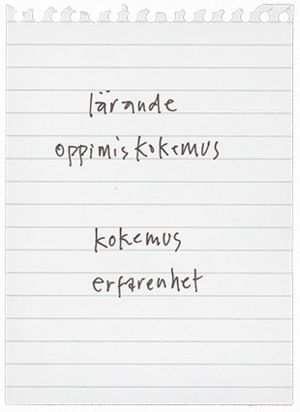 lärande
oppimiskokemus
kokemus
erfarenhet